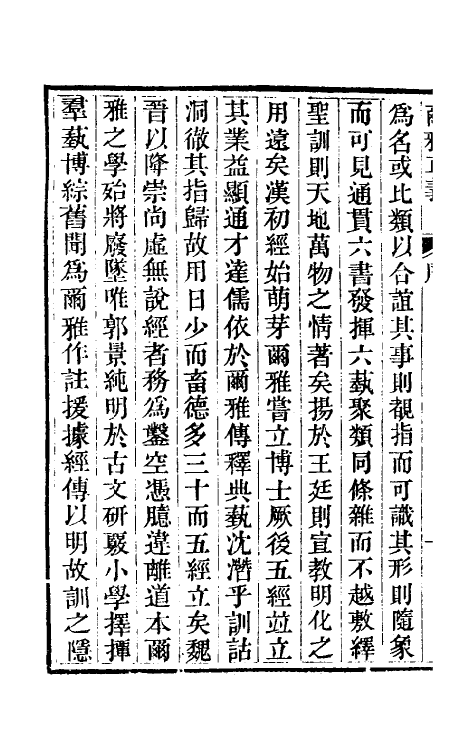 爲名或比類以合誼其事則覩指而可識其形則隨象
而可見通貫六書發揮六藝聚類同條雜而不越敷繹
聖訓則天地萬物之情著矣揚於王廷則宣教明化之
用遠矣漢初經始萌芽爾雅嘗立博士厥後五經竝立
其業益顯通才達儒依於爾雅傳釋典藝沈潛乎訓詁
洞徹其指歸故用日少而畜德多三十而五經立矣魏
晉以降崇尚虛無說經者務爲鑿空憑臆違離道本爾
雅之學始將廢墜唯郭景純明於古文研覈小學擇撢
羣藝博綜舊聞爲爾雅作註援據經傳以明故訓之隱